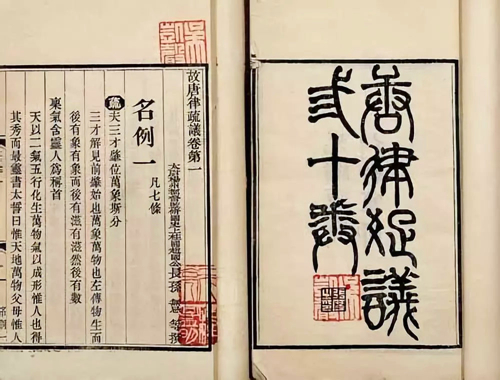 唐律疏議
弎十卷
故唐律疏議卷第一
太尉揚州都督監修國史上柱國趙國公長孫無忌等撰
名例一 凡七條
疏夫三才肇位萬象斯分
三才解見前肇始也萬象萬物也左傳物生而
後有象有象而後有滋有滋然後有數
稟氣含靈人為稱首
天以二氣五行化生萬物氣以成形惟人也得
其秀而最靈書太誓曰惟天地萬物父母惟人